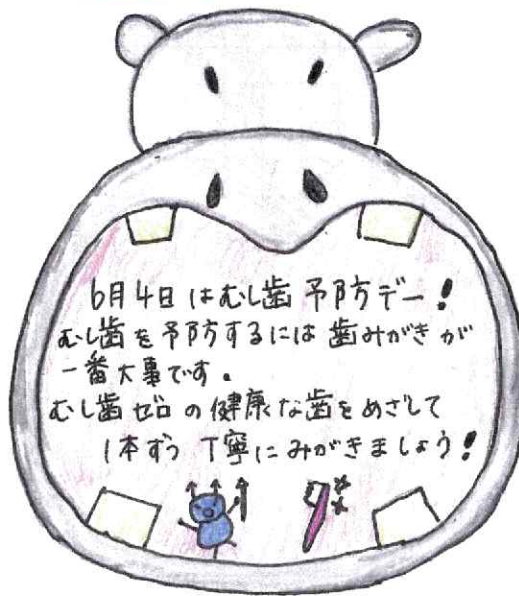 6月4日はむし歯予防デー!
むし歯を予防するには歯みがきが
一番大事です。
むし歯ゼロの健康な歯をめざして
1本ずつ丁寧にみがきましょう!